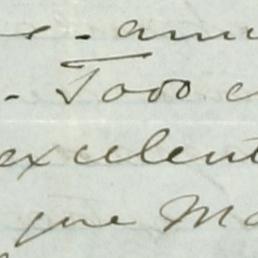 - Todo
excelent
que Ma